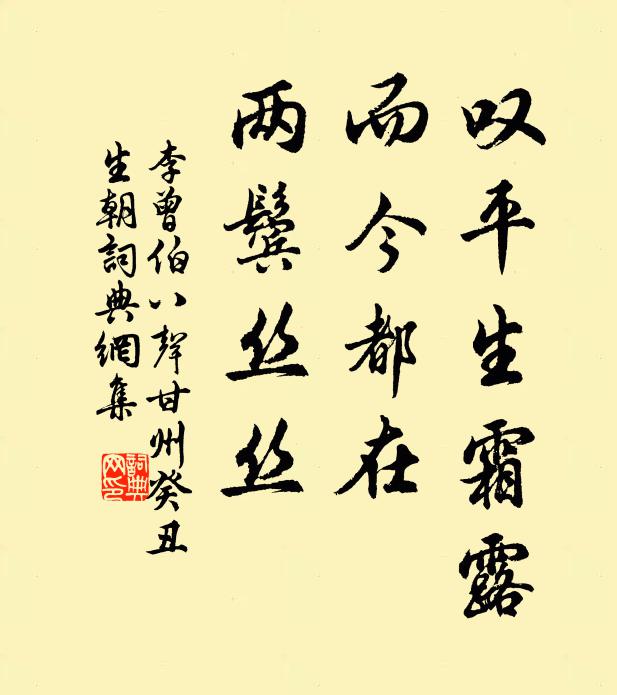 叹平生霜露
而今都在
两鬓丝丝
李曾伯八声甘州癸丑
生朝詞典網集
詞典网印